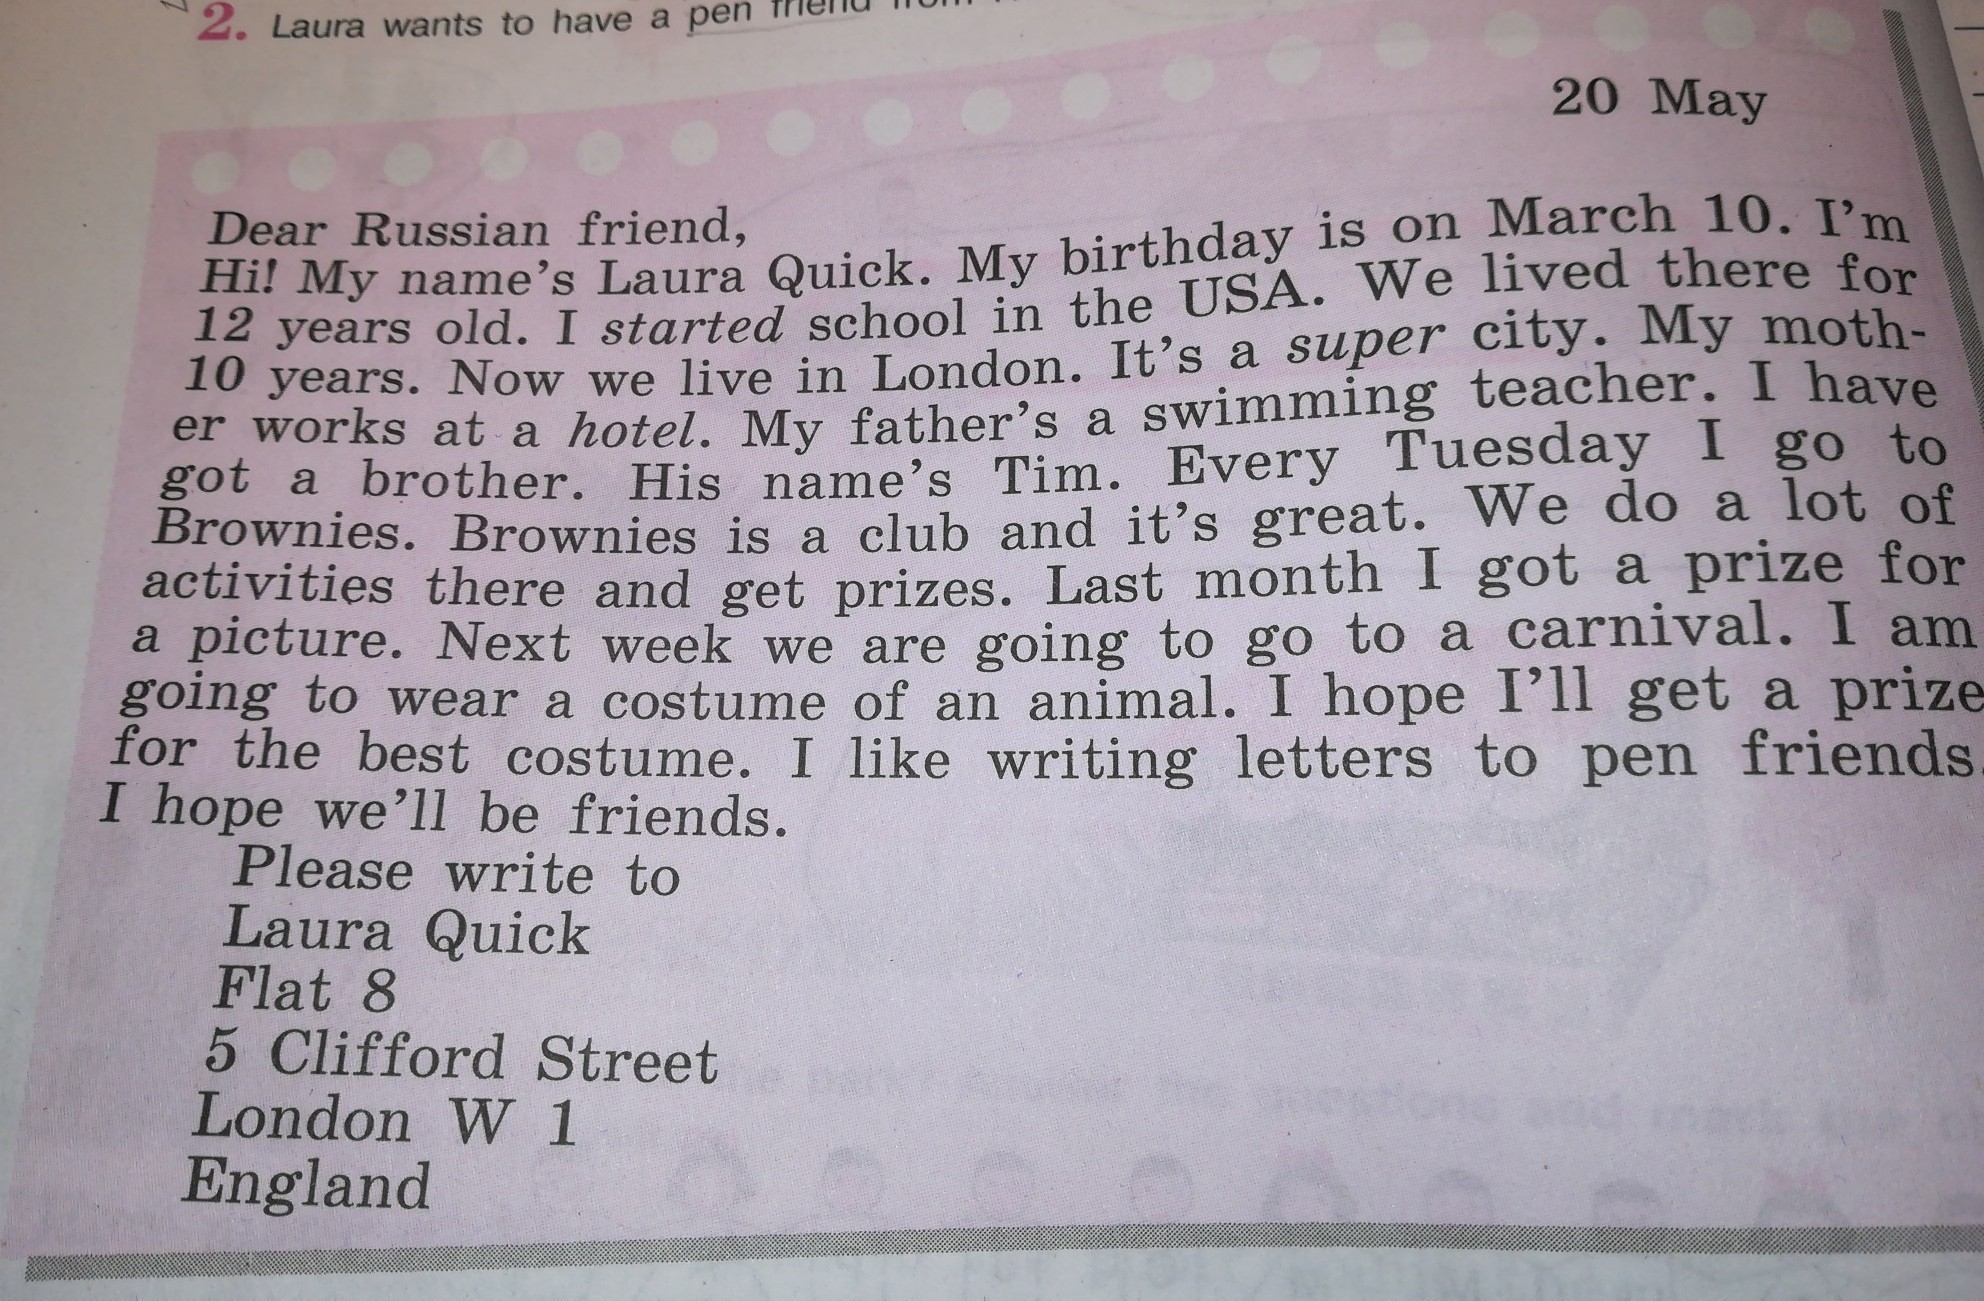 2. Laura wants to have a pen friend
20 May
Dear Russian friend,
Hi! My name's Laura Quick. My birthday is on March 10. I'm
12 years old. I started school in the USA. We lived there for
10 years. Now we live in London. It's a super city. My moth-
er works at a hotel. My father's a swimming teacher. I have
got a brother. His name's Tim. Every Tuesday I go to
Brownies. Brownies is a club and it's great. We do a lot of
activities there and get prizes. Last month I got a prize for
a picture. Next week we are going to go to a carnival. I am
going to wear a costume of an animal. I hope I'll get a prize
for the best costume. I like writing letters to pen friends.
I hope we'll be friends.
Please write to
Laura Quick
Flat 8
5 Clifford Street
London W 1
England